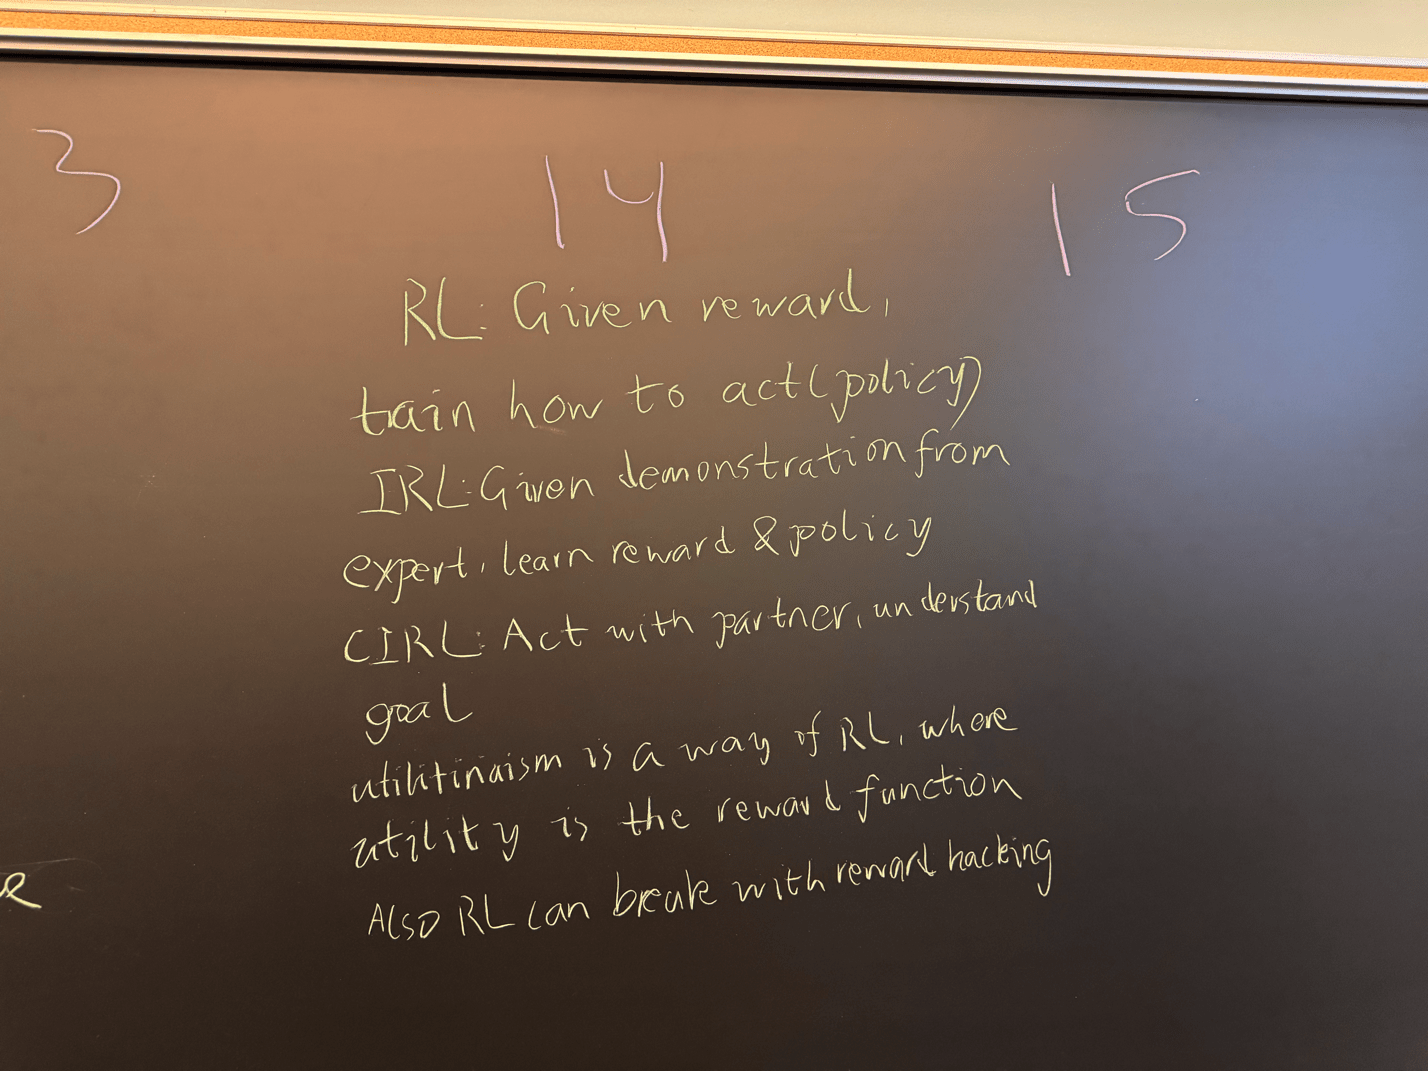 3 14 15
RL: Given reward,
train how to act (policy)
IRL: Given demonstration from
expert, learn reward & policy
CIRL: Act with partner, understand
goal
utilitinaism is a way of RL, where
utility is the reward function
Also RL can break with reward hacking